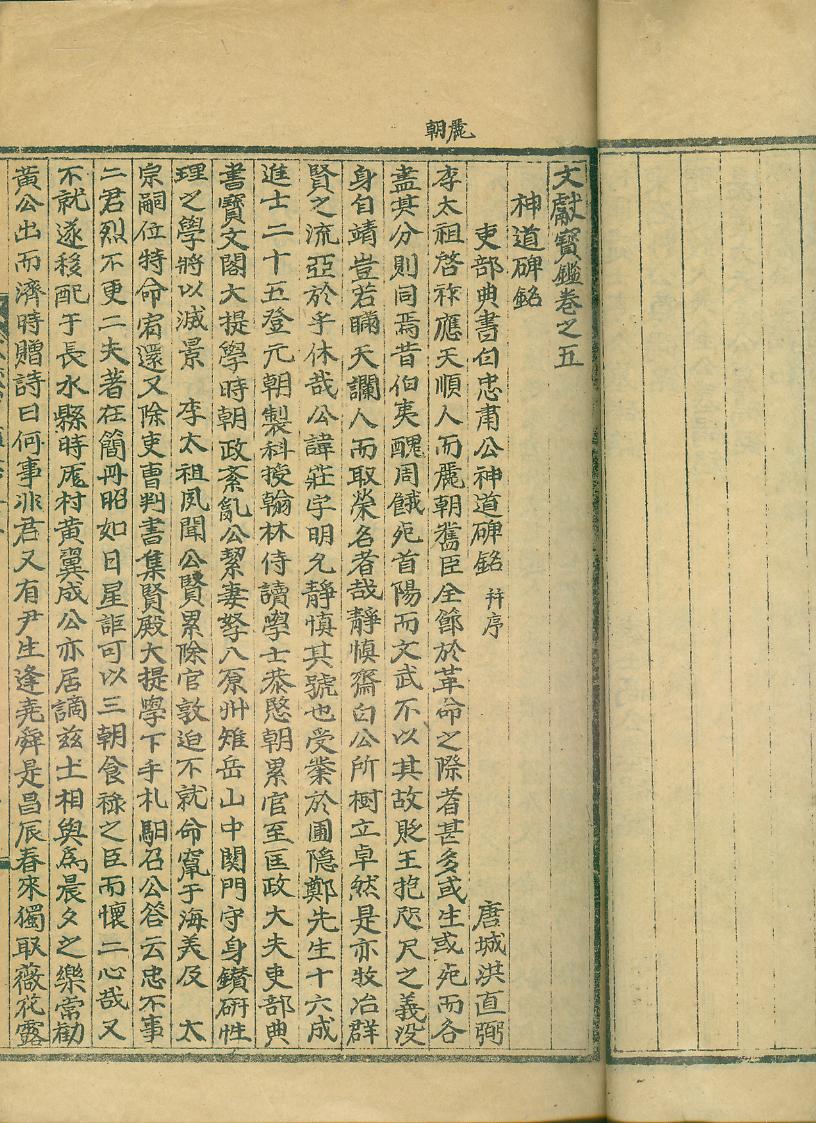 麗朝
文獻寶鑑卷之五
神道碑銘
吏部典書白忠肅公神道碑銘 幷序 唐城洪直弼
李太祖啓祚應天順人而麗朝舊臣全節於革命之際者甚多或生或死而各
盡其分則同焉昔伯夷醜周餓死首陽而文武不以其故貶王抱咫尺之義沒
身自靖豈若瞞天讕人而取榮名者哉靜愼齋白公所樹立卓然是亦牧冶群
賢之流亞於乎休哉公諱莊字明允靜愼其號也受業於圃隱鄭先生十六成
進士二十五登元朝製科授翰林侍讀學士恭愍朝累官至匡政大夫吏部典
書寶文閣大提學時朝政紊亂公絜妻孥入原州雉岳山中関門守身鑚硏性
理之學將以滅景 李太祖夙聞公賢累除官敦迫不就命竄于海美及 太
宗嗣位特命宥還又除吏曺判書集賢殿大提學下手札馹召公答云忠不事
二君烈不更二夫著在簡冊昭如日星詎可以三朝食祿之臣而懷二心哉又
不就遂移配于長水縣時厖村黃翼成公亦居謫兹土相與爲晨夕之樂常勸
黃公出而濟時贈詩曰何事非君又有尹生逢堯舜是昌辰春來獨取薇花露